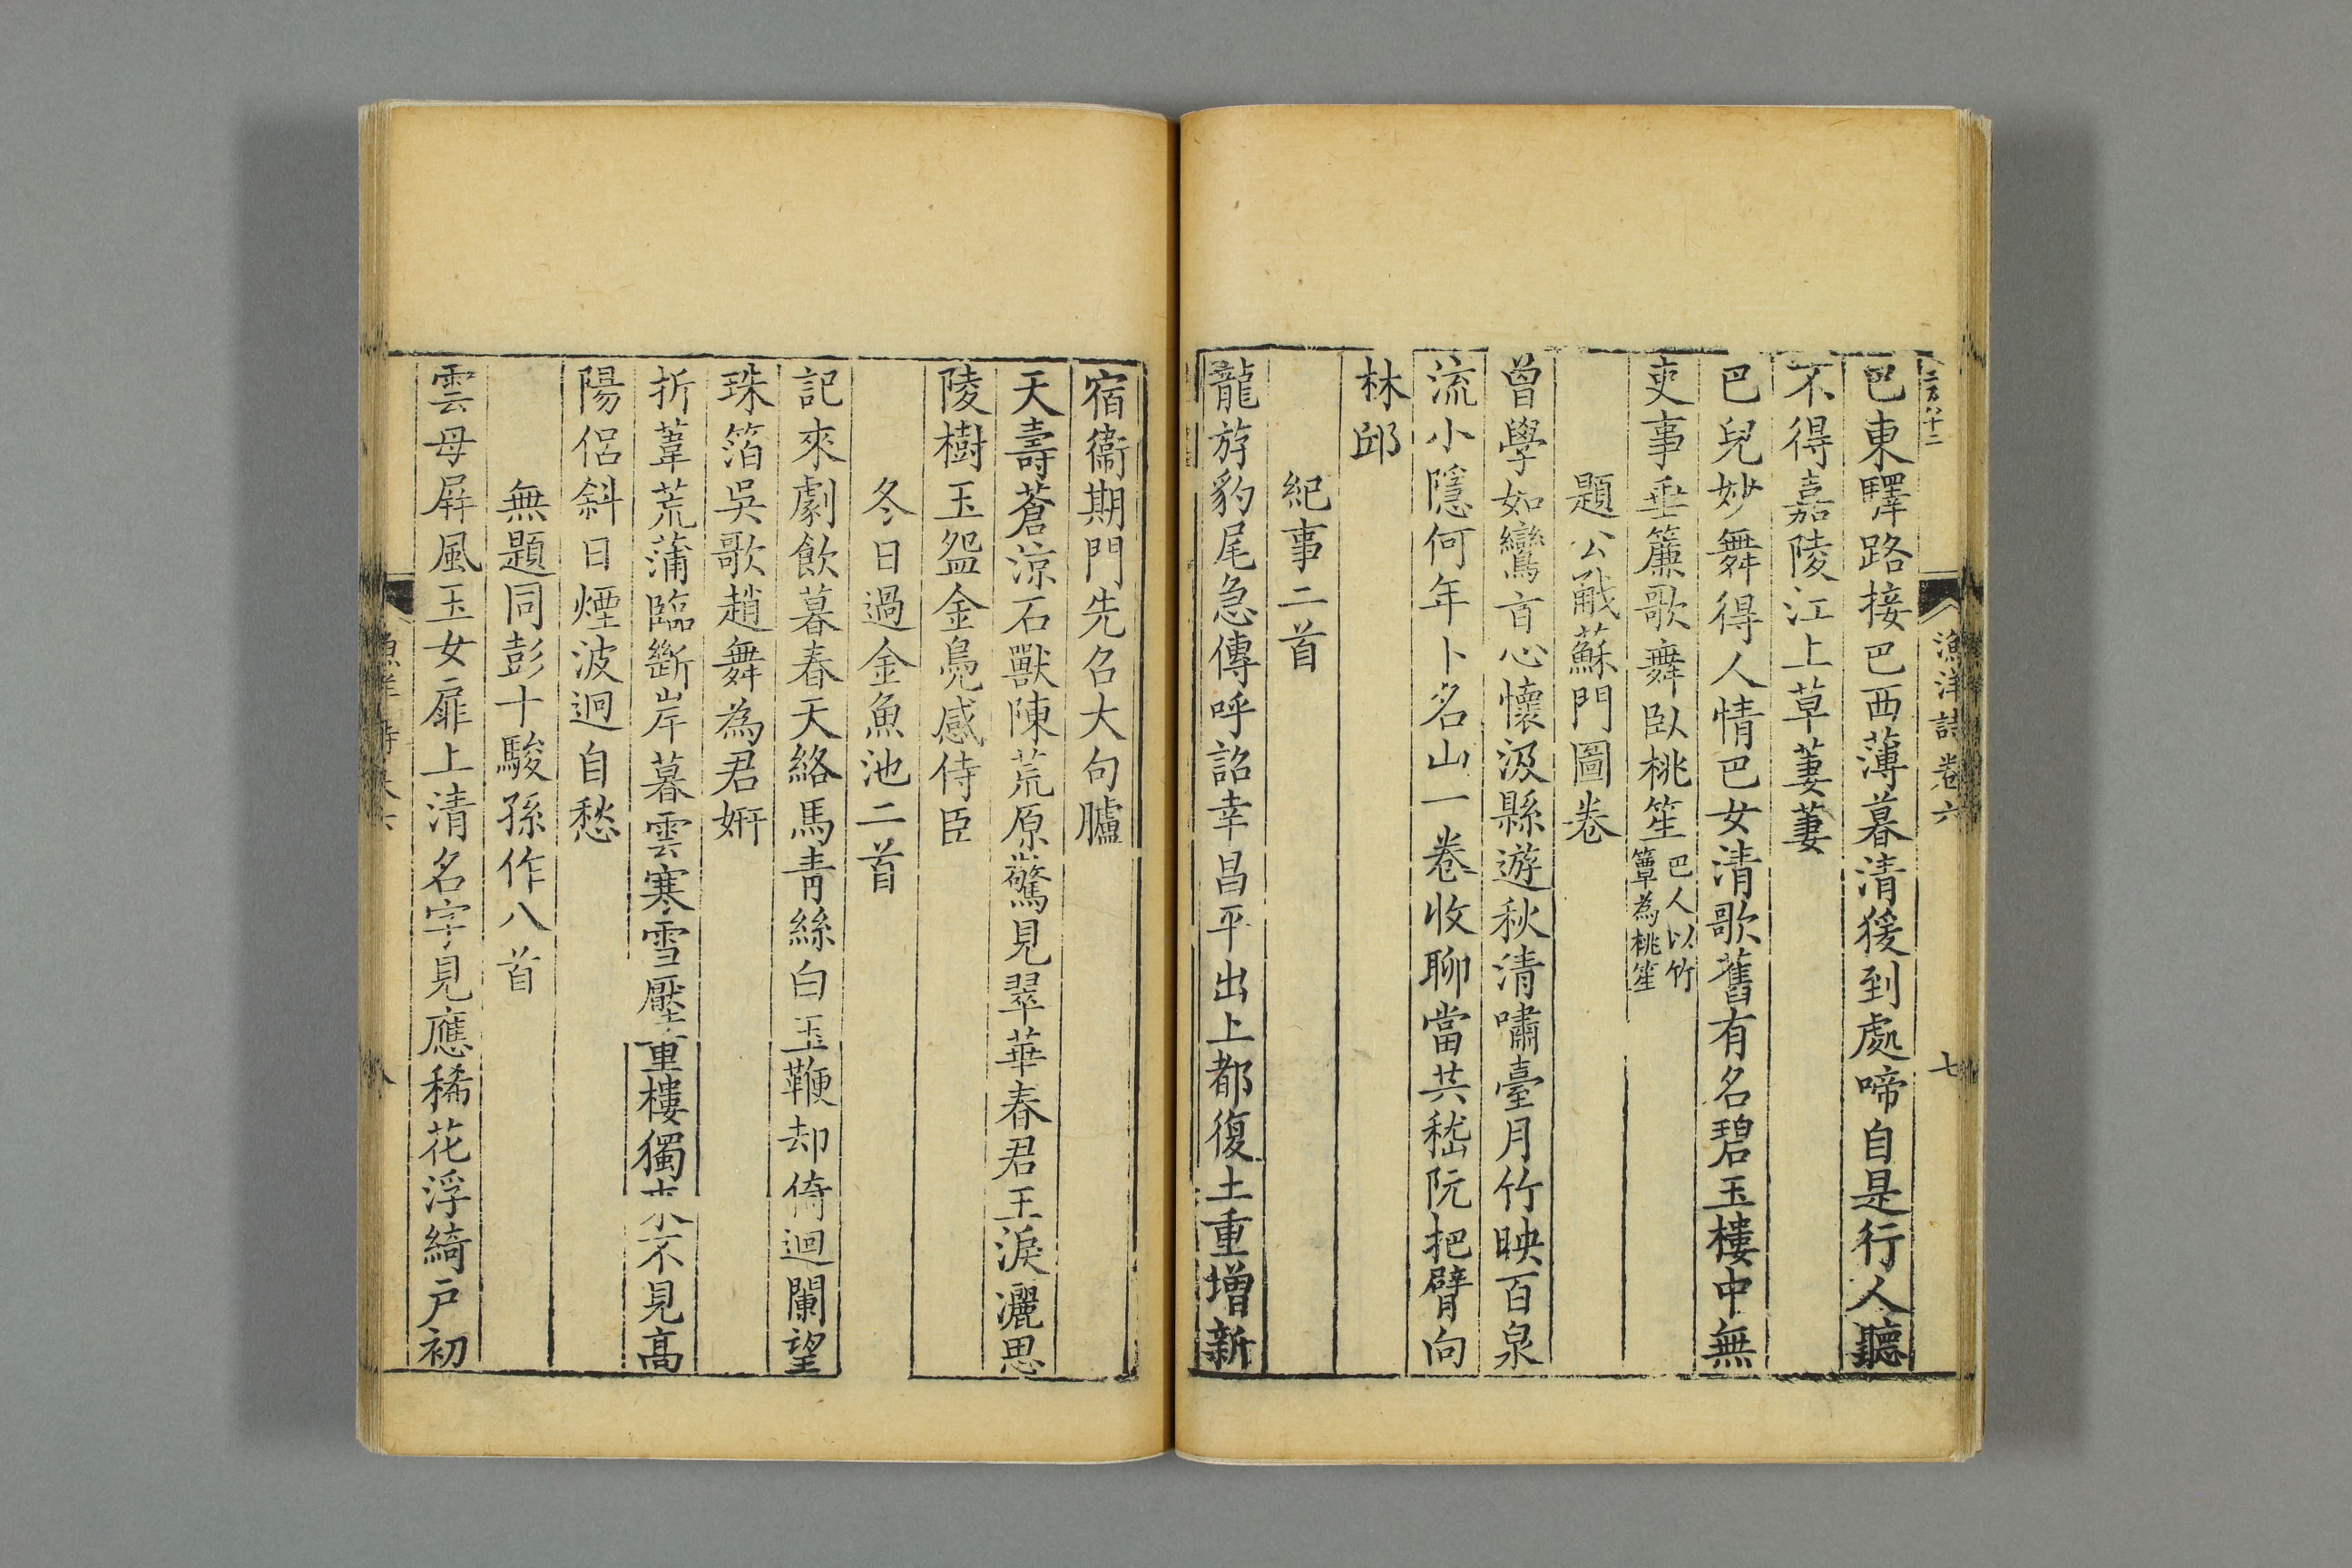 漁洋詩卷六
七
巴東驛路接巴西薄暮清猨到處啼自是行人聽
不得嘉陵江上草萋萋
巴兒妙舞得人情巴女清歌舊有名碧玉樓中無
吏事垂簾歌舞臥桃笙巴人以竹
簟為桃笙
題公㦸蘇門圖卷
曾學如鸞盲心懷汲縣遊秋清嘯臺月竹映百泉
流小隱何年卜名山一卷收聊當共嵇阮把臂向
林邱
紀事二首
龍斿豹尾急傳呼詔幸昌平出上都復土重增新
宿衞期門先召大句臚
天壽蒼涼石獸陳荒原驚見翠華春君王淚灑思
陵樹玉盌金鳧感侍臣
冬日過金魚池二首
記來劇飲暮春天絡馬青絲白玉鞭却倚迴闌望
珠箔吳歌趙舞為君妍
折葦荒蒲臨斷岸暮雲寒雪壓重樓獨來不見高
陽侶斜日煙波迥自愁
無題同彭十駿孫作八首
雲母屏風玉女扉上清名字見應稀花浮綺戶初
八